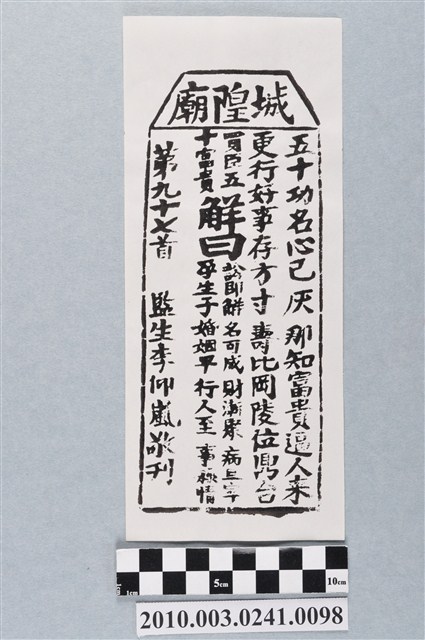 城隍廟
五十功名心已灰 那知富貴逼人來
更行好事存方寸 壽比岡陵位鼎台
買臣五十富貴
解曰
訟即解 名可成 財漸聚 病且寧
孕生子 婚姻平 行人至 事稱情
第九十七首 監生李仰嵐敬刊
1cm
5cm
10cm
2010.003.0241.0098